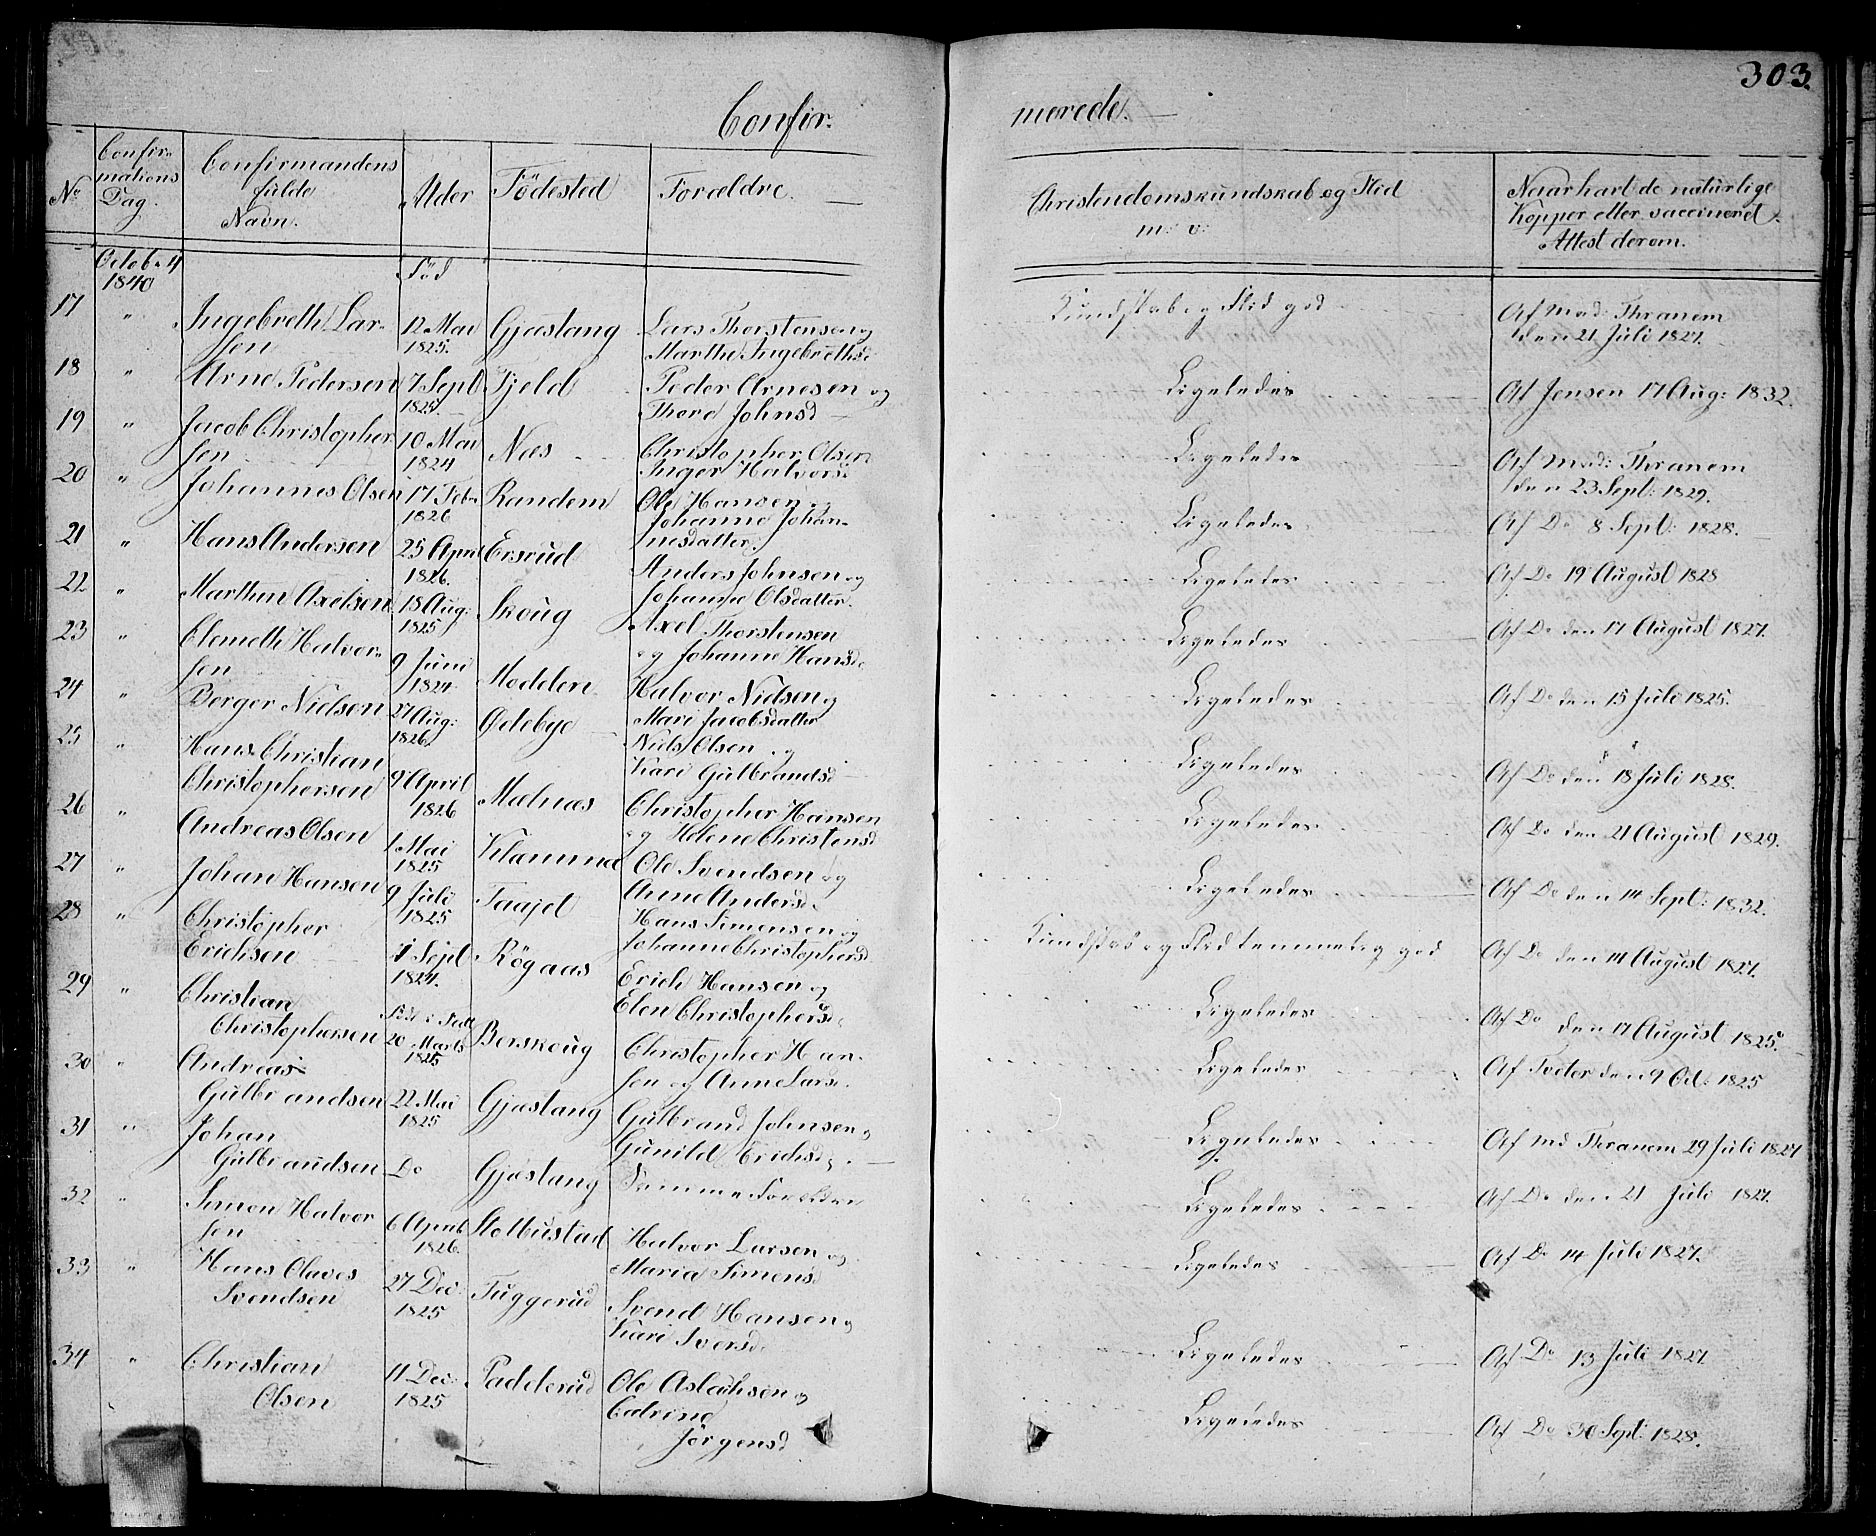 303.
Confir-
merede.
No
Confir-
mations
Dag.
Confirmandens
fulde
Navn.
Alder
Födested
Forældre.
Christendomskundskab og Flid
m: v:
Naar havt de naturlige
Kopper eller vaccineret.
Attest derom.
Octob. 4
1840
Föd
17 " Ingebreth Lar-
sen
12 Mai
1825.
Gjæstang
Lars Thorstensen og
Marthe Ingebrethsd
Kundskab og Flid god
Af Mad: Thranem
den 21 Juli 1827.
18 " Arne Pedersen
7 Sept
1825
Fjeld
Peder Arnesen og
Thore Johnsd
Ligeledes
Af Jensen 17 Aug: 1832.
19 " Jacob Christopher
sen
10 Mai
1824
Næs
Christopher Olsen
Inger Halvorsd
Ligeledes
Af Mad: Thranem
den 23 Sept: 1829.
20 " Johannes Olsen
17 Feb.
1826
Randem
Ole Hansen og
Johanne Johan-
nesdatter.
Ligeledes
Af Do 8 Sept: 1828.
21 " Hans Andersen
25 April
1826.
Ersrud
Anders Johnsen og
Johanne Olsdatter.
Ligeledes
Af Do 19 August 1828
22 " Marthin Axelsen
18 Aug:
1825
Skoug
Axel Thorstensen
og Johanne Hansd.
Ligeledes
Af Do den 17 August 1827.
23 " Clemeth Halvor-
sen
9 Juni
1824
Modden
Halvor Nielsen og
Mari Jacobsdatter
Ligeledes
Af Do den 15 Juli 1825.
24 " Berger Nielsen
27 Aug:
1826.
Ødebye
Niels Olsen og
Kari Gulbrandsd
Ligeledes
Af Do den 18 Juli 1828.
25 " Hans Christian
Christophersen
9 April
1826
Mælnæs
Christopher Hansen
og Helene Christensd
Ligeledes
Af Do den 21 August 1829.
26 " Andreas Olsen
1 Mai
1825
Klæmma
Ole Svendsen og
Anne Andersd.
Ligeledes
Af Do den 14 Sept: 1832.
27 " Johan Hansen
9 Juli
1825
Taajet
Hans Simensen og
Johanne Christophersd
Kundskab og Flid temmelig god
Af Do den 14 August 1827.
28 " Christopher
Erichsen
1 Sept
1824.
Rögaas
Erich Hansen og
Elen Christophersd.
Ligeledes
Af Do den 17 August 1825.
29 " Christian
Christophersen
20 Marts
1825
Berskoug
Christopher Han-
sen og Anne Larsd.
Ligeledes
Af Tveter den 9 Oct: 1825
30 " Andreas
Gulbrandsen
22 Mai
1825
Gjæstang
Gulbrand Johnsen og
Gunild Erichsd.
Ligeledes
Af Md Thranem 29 Juli 1827
31 " Johan
Gulbrandsen
Do
Gjæstang
Samme Forældre
Ligeledes
Af Do den 21 Juli 1827.
32 " Simon Halvor
sen
6 April
1826.
Stolbustad
Halvor Larsen og
Maria Simensd
Ligeledes
Af Do 14 Juli 1827.
33 " Hans Olaves
Svendsen
27 Dec:
1825
Tuggerud
Svend Hansen og
Kari Iversd.
Ligeledes
Af Do 13 Juli 1827
34 " Christian
Olsen
11 Dec:
1825
Padderud
Ole Aslachsen og
Catrine
Jörgensd
Ligeledes
Af Do 30 Sept: 1828.